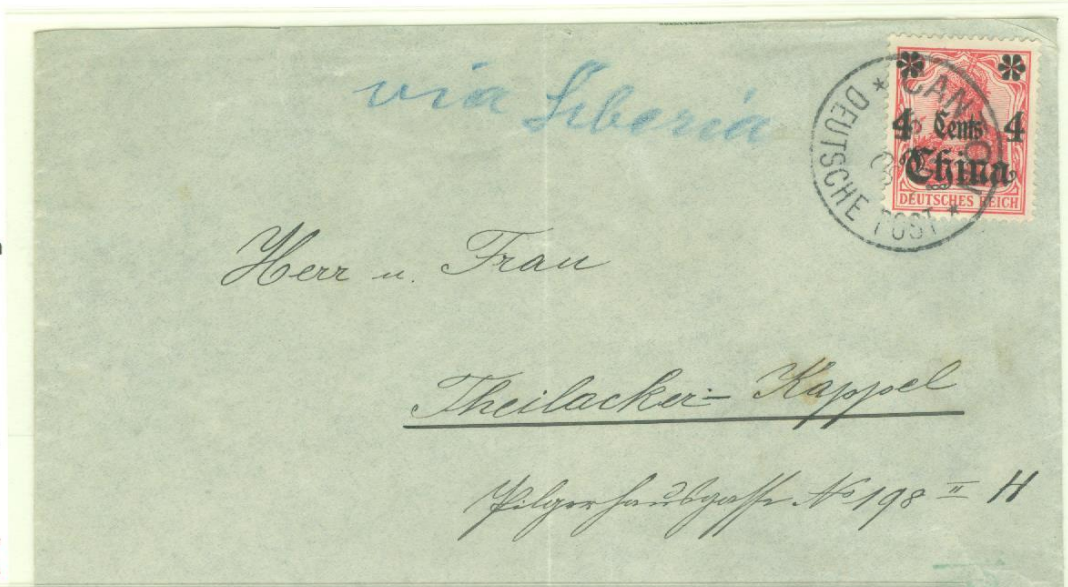 via Siberia
CANTON
DEUTSCHE POST
4 Cents 4
China
DEUTSCHES REICH
Herr u. Frau
Theilacker-Kappel
Pilgerhausgasse No 198 II H